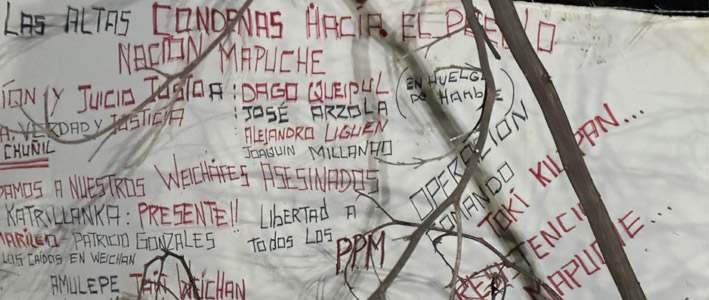 LAS ALTAS CONDENAS HACIA EL PUEBLO
NACIÓN MAPUCHE
IÓN Y JUICIO JUSTO A : DAGO QUEIPUL
A. VERDAD Y JUSTICIA : JOSÉ ARZOLA
CHUÑIL : ALEJANDRO LIGUEN
JOAQUIN MILLANAO
(EN HUELGA
DE HAMBRE)
DAMOS A NUESTROS WEICHAFES ASESINADOS
KATRILLANKA: PRESENTE!!
MARILEO - PATRICIO GONZALES
LOS CAIDOS EN WEICHAN
AMULEPE TAIÑ WEICHAN
LIBERTAD A
TODOS LOS
PPM
OPERACION
COMANDO
TOKI KILAPAN...
RESISTENCIA
MAPUCHE...